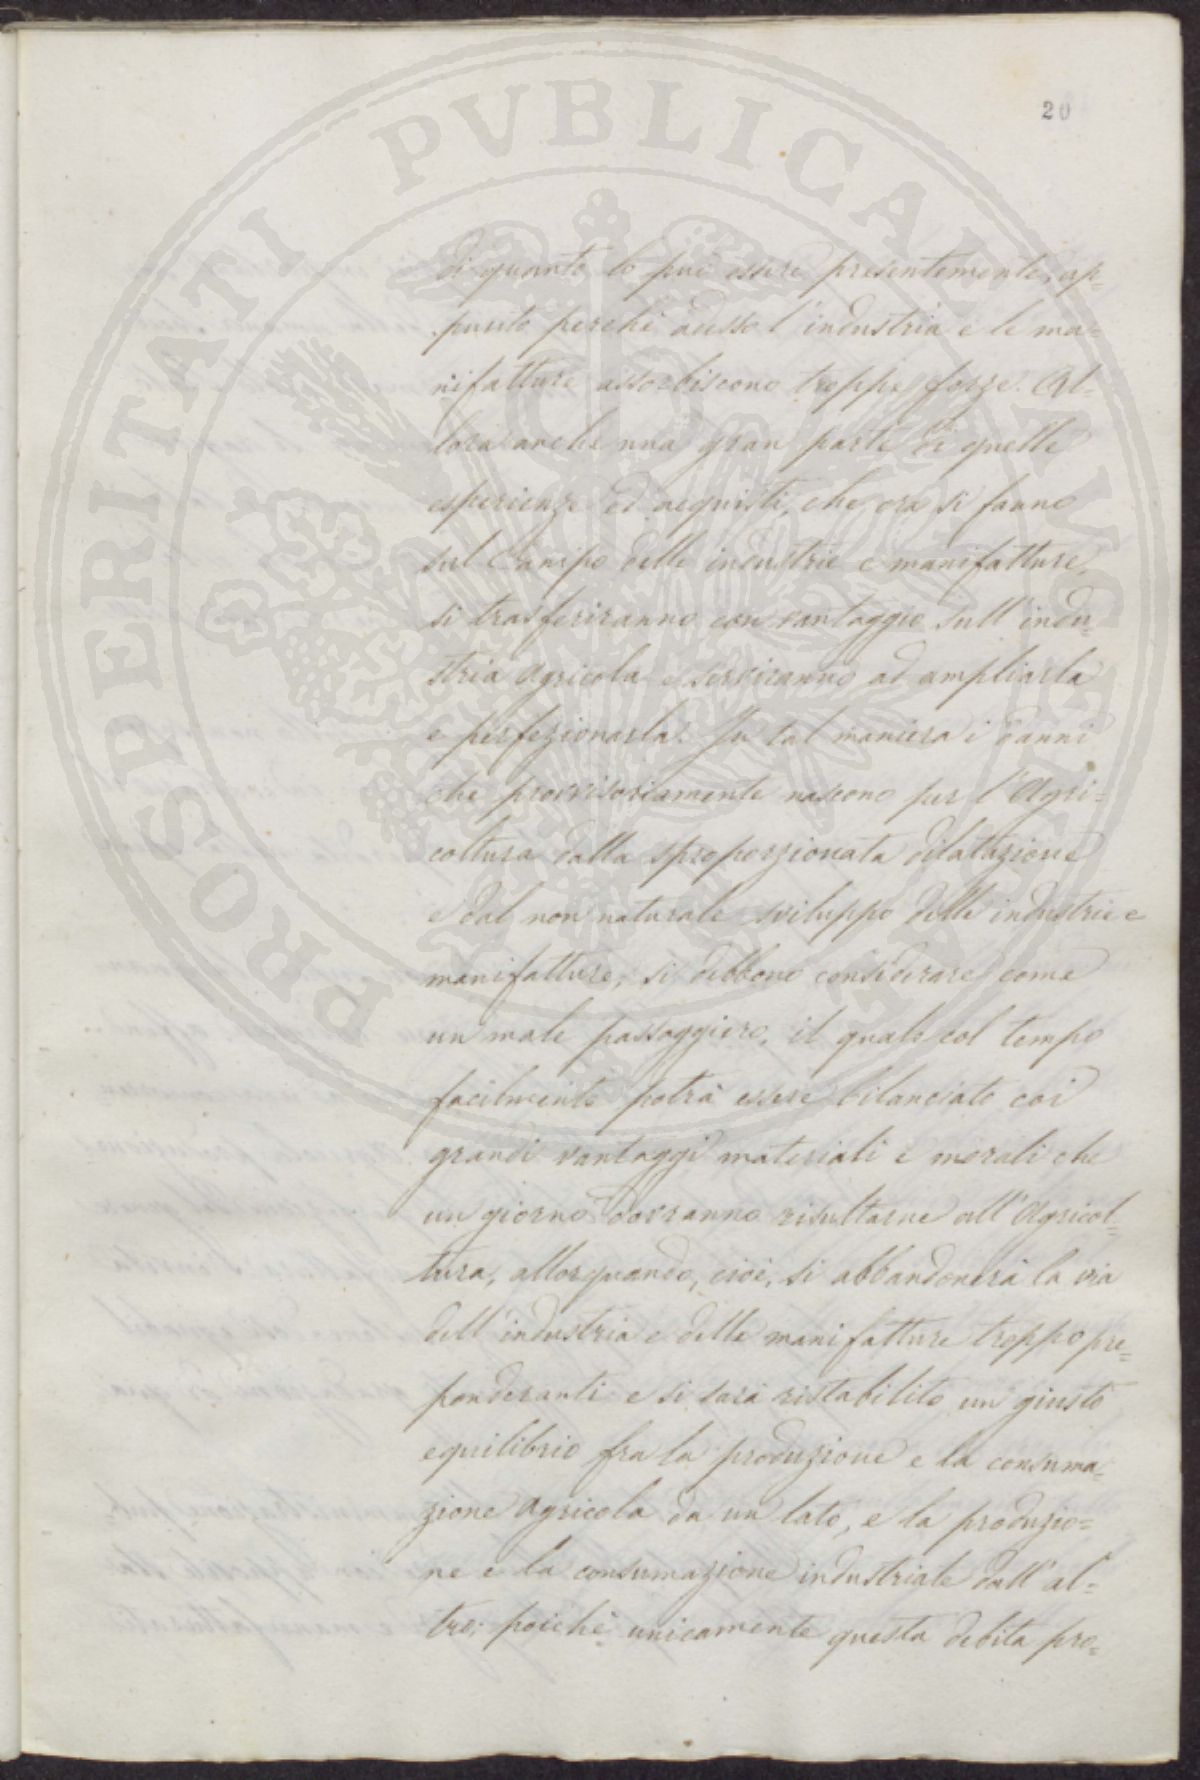 20
PROSPERITATI PVBLICAE AVGENDAE
di quanto lo può essere presentemente, ap=
punto perchè adesso l'industria e le ma=
nifatture assorbiscono troppe forze. Al=
lora anche una gran parte di quelle
esperienze ed acquisti, che ora si fanno
sul Campo delle industrie e manifatture,
si trasferiranno con vantaggio sull'indu=
stria agricola e serviranno ad ampliarla
e perfezionarla. In tal maniera i danni
che provvisoriamente nascono per l'Agri=
coltura dalla sproporzionata dilatazione
e dal non naturale sviluppo delle industrie e
manifatture, si debbono considerare come
un male passaggiero, il quale col tempo
facilmente potrà essere bilanciato coi
grandi vantaggi materiali e morali che
un giorno dovranno risultarne all'Agricol=
tura, allorquando, cioè, si abbandonerà la via
dell'industria e delle manifatture troppo pre=
ponderanti e si sarà ristabilito un giusto
equilibrio fra la produzione e la consuma=
zione agricola da un lato, e la produzio=
ne e la consumazione industriale dall'al=
tro; poichè unicamente questa debita pro=